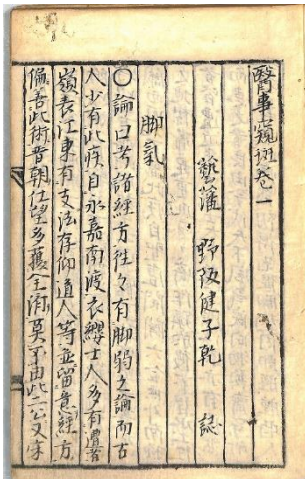 醫事窺班卷一
藝藩 野阪健子乾 誌
脚氣
〇論曰考諸經方往々有脚弱之論而古
人少有此疾自永嘉南渡衣纓士人多有遭者
嶺表江東有支法存仰道人等並留意經方
偏善此術晋朝仕望多獲全濟莫不由此二公又宋